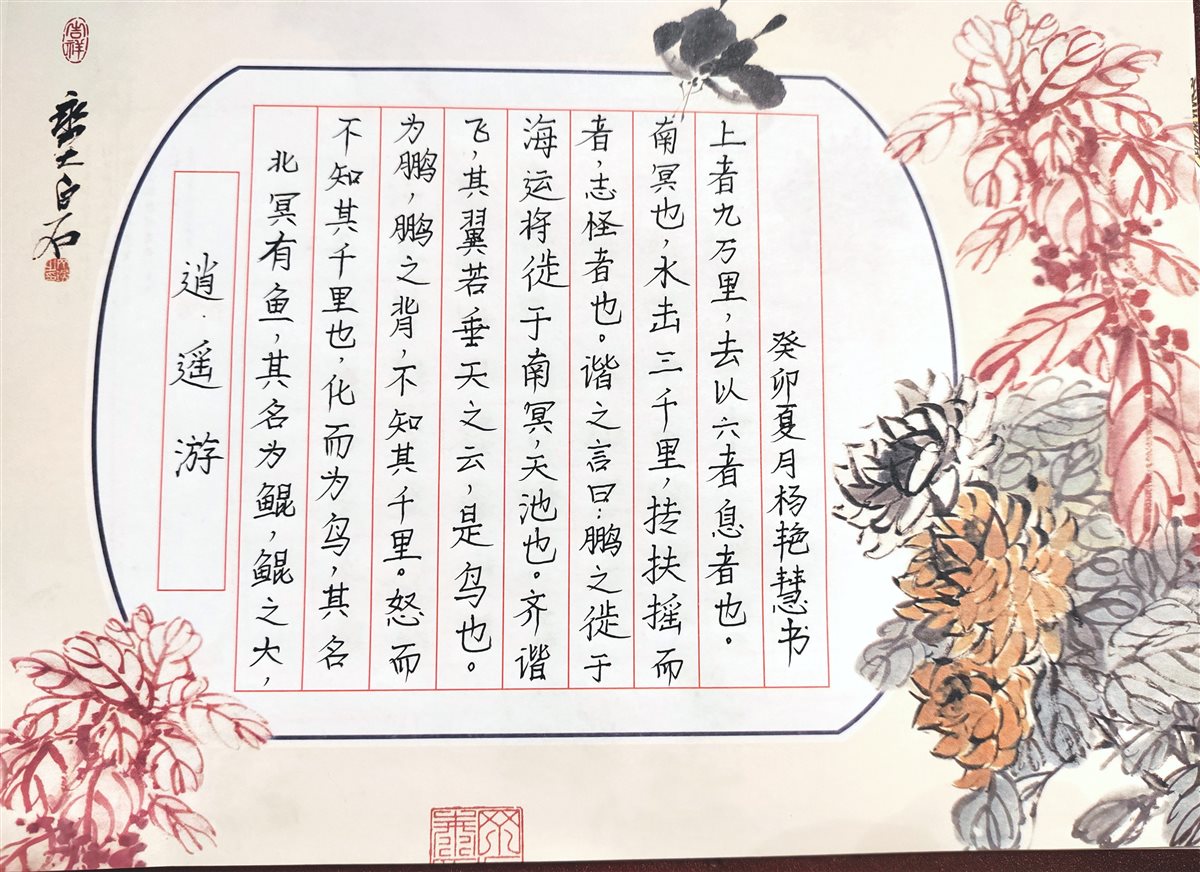 吉祥
白石
逍遥游
北冥有鱼，其名为鲲，鲲之大，
不知其千里也，化而为鸟，其名
为鹏，鹏之背，不知其千里。怒而
飞，其翼若垂天之云，是鸟也。
海运将徙于南冥，天池也。齐谐
者，志怪者也。谐之言曰：鹏之徙于
南冥也，水击三千里，抟扶摇而
上者九万里，去以六者息者也。
癸卯夏月杨艳慧书